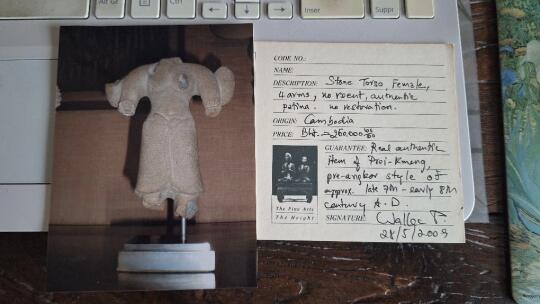 Alt Gr
Inser
Suppr
CODE NO.:
NAME
DESCRIPTION: Stone Torso, Female,
4 arms, no repent, authentic
patina. no restoration.
ORIGIN: Cambodia
PRICE: Bht. = 260,000
GUARANTEE: Real authentic
item of Prei-Kmeng,
pre-angkor style of
approx. late 7th - early 8th
century A.D.
The Fine Arts
The Height
SIGNATURE:
28/5/2009